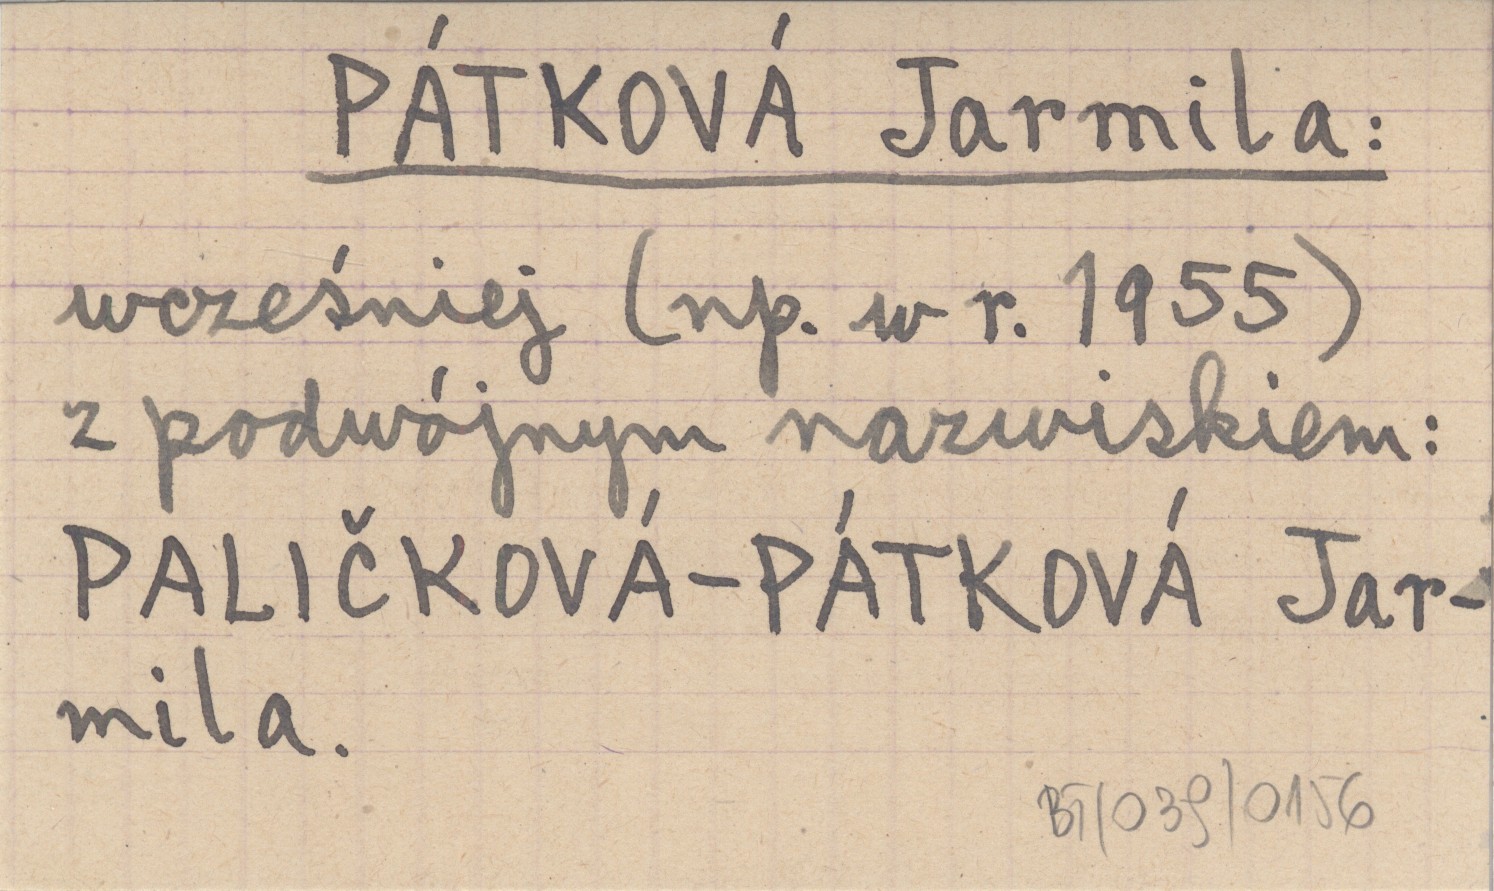 PÁTKOVÁ Jarmila:
wcześniej (np. w r. 1955)
z podwójnym nazwiskiem:
PALIČKOVÁ-PÁTKOVÁ Jar-
mila.
BT/039/0156